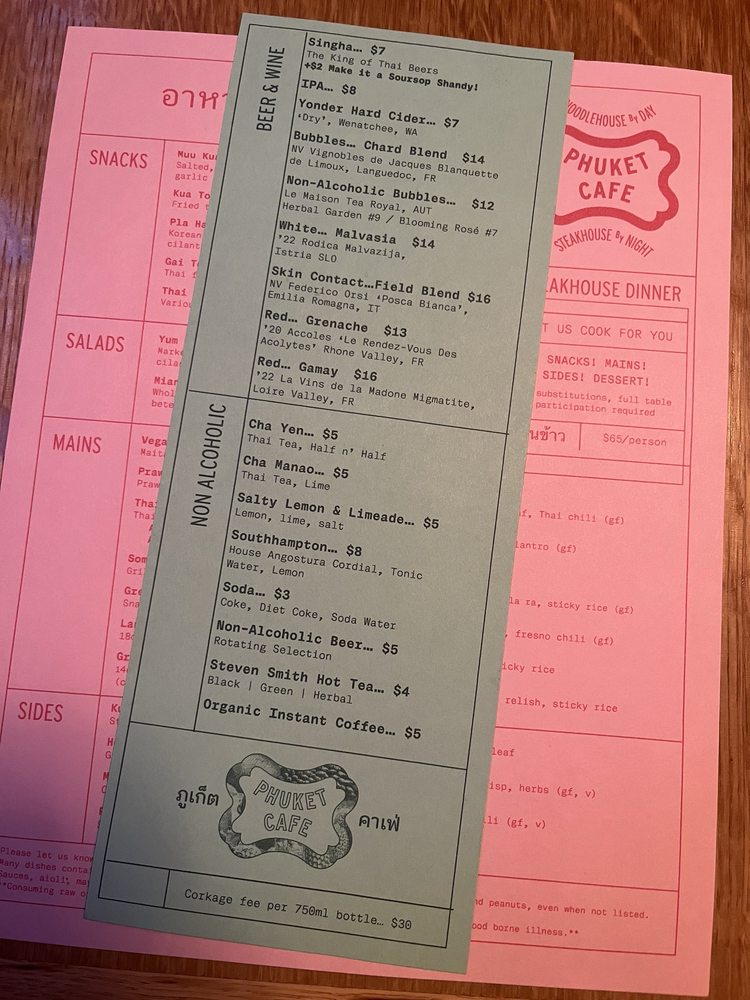 BEER & WINE
Singha… $7
The King of Thai Beers
+$2 Make it a Soursop Shandy!
IPA… $8
Yonder Hard Cider… $7
‘Dry’, Wenatchee, WA
Bubbles… Chard Blend $14
NV Vignobles de Jacques Blanquette
de Limoux, Languedoc, FR
Non-Alcoholic Bubbles… $12
Le Maison Tea Royal, AUT
Herbal Garden #9 / Blooming Rosé #7
White… Malvasia $14
’22 Rodica Malvazija,
Istria SLO
Skin Contact…Field Blend $16
NV Federico Orsi ‘Posca Bianca’,
Emilia Romagna, IT
Red… Grenache $13
’20 Accoles ‘Le Rendez-Vous Des
Acolytes’ Rhone Valley, FR
Red… Gamay $16
’22 La Vins de la Madone Migmatite,
Loire Valley, FR
NON ALCOHOLIC
Cha Yen… $5
Thai Tea, Half n’ Half
Cha Manao… $5
Thai Tea, Lime
Salty Lemon & Limeade… $5
Lemon, lime, salt
Southhampton… $8
House Angostura Cordial, Tonic
Water, Lemon
Soda… $3
Coke, Diet Coke, Soda Water
Non-Alcoholic Beer… $5
Rotating Selection
Steven Smith Hot Tea… $4
Black | Green | Herbal
Organic Instant Coffee… $5
ภูเก็ต
PHUKET
CAFE
คาเฟ่
Corkage fee per 750ml bottle… $30
SNACKS
Muu
Salted,
garlic
Kua
Fried
Pla
Korean
Gai
Thai
Thai
SALADS
Yum
MAINS
SIDES
Please let us know
Many dishes
Sauces, aioli,
**Consuming raw
NOODLEHOUSE BY DAY
PHUKET
CAFE
STEAKHOUSE BY NIGHT
DINNER
US COOK FOR YOU
SNACKS! MAINS!
SIDES! DESSERT!
substitutions, full table
participation required
$65/person
Thai chili (gf)
(gf)
la ra, sticky rice (gf)
fresno chili (gf)
rice
relish, sticky rice
leaf
herbs (gf, v)
(gf, v)
peanuts, even when not listed.
borne illness.**